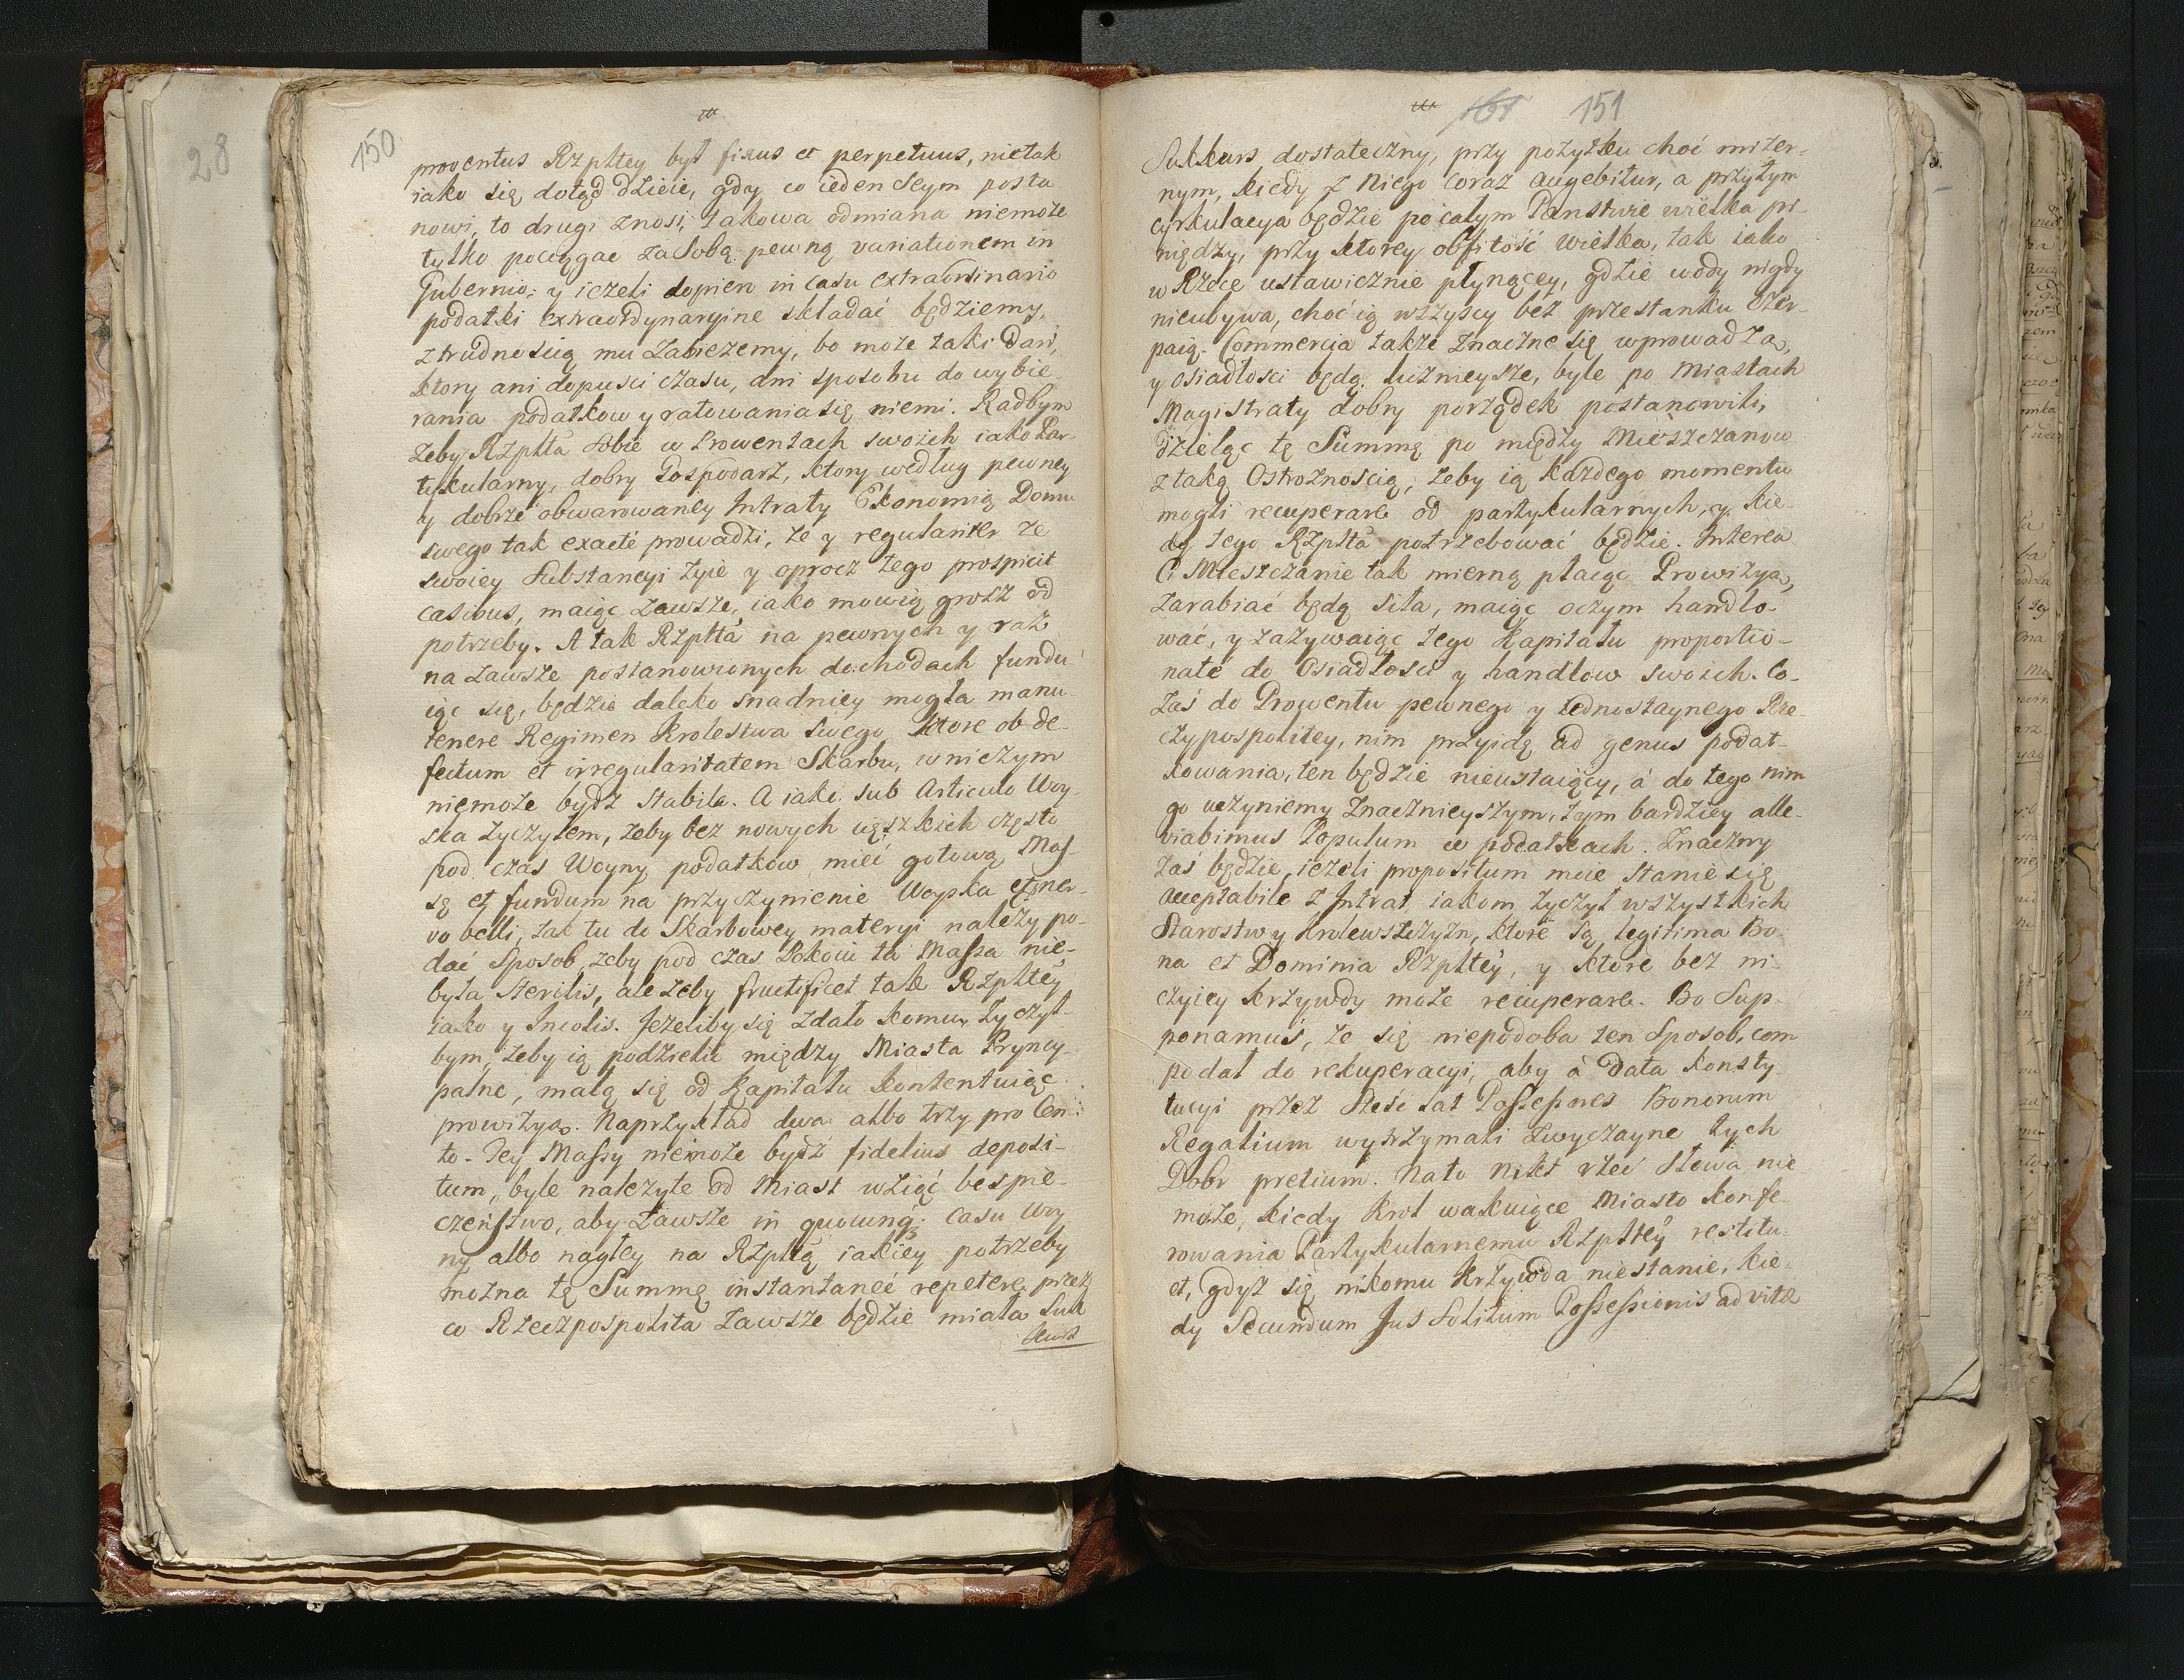 28
150
proventus Rzpltey był fixus et perpetuus, nietak
iako się dotąd dzieie, gdy co ieden Seym posta
nowi, to drugi znosi; takowa odmiana niemoże
tylko pociągac za Sobą pewną variationem in
Gubernio; y ieżeli dopiero in casu extraordinario
podatki extraordynaryine składać będziemy,
z trudnościąmu zabieżemy, bo może taki dań,
ktory ani dopusci czasu, ani sposobu do wybie
rania podatkow y ratowania się niemi. Radbym
żeby Rzplta sobie w Prowentach swoich iako Par-
tykularny, dobry Gospodarz, ktory według pewney
y dobrze obwarowaney Intraty Ekonomią Domu
swego tak exactè prowadzi, że y regulariter ze
swoiey Substancyi żyie y oprocz tego prospicit
casibus, maiąc zawsze, iako mowią grosz od
potrzeby. A tak Rzplta na pewnych y raz
na zawsze postanowionych dochodach fundu
iąc się, będzie daleko snadniey mogła manu
tenere Regimen Krolestwa swego, ktore ob de-
fectum et irregularitatem Skarbu, w niczym
niemoże bydz stabile. A iako sub Articulo Woy-
ska życzyłem, żeby bez nowych cięszkich częśto
pod czas Woyny podatkow mieć gotową Mas-
sę et fundum na przyczynienie Woyska et ner-
vo belli, tak tu do Skarbowey materyi należy po-
dać Sposob, żeby pod czas Pokoiu ta Massa nie-
była sterilis, ale żeby fructificet tak Rzpltey
iako y Incolis. Jeżeliby się zdało komu, życzył-
bym, żeby ią podzielić między Miasta Pryncy-
palne, małą się od Kapitału kontentuiąc
prowizyą. Naprzykład dwa albo trzy pro Cen-
to. Tey Massy niemoże bydź fidelius deposi-
tum, byle należyte od Miast wziąć bespie-
czeństwo, aby zawsze in quovunq; casu Woy
ny albo nagłey na Rzpltą iakiey potrzeby
można tę Summę instantaneè repetere, przez
co Rzeczpospolita zawsze będzie miała Suk
kurs
151
Sukkurs dostateczny, przy pożytku choć mizer-
nym, kiedy z Niego coraz augebitur, a przytym
cyrkulacya będzie po całym Panstwie wielka pi-
niędzy, przy ktorey obfitość wielka, tak iako
w Rzece ustawicznie płynącey, gdzie wody nigdy
nieubywa, choć ią wszyscy bez przestanku czer-
paią. Commercia także znaczne się wprowadzą,
y osiadłosci będą lużnieysze, byle po Miastach
Magistraty dobry porządek postanowili,
dzieląc tę Summę po między Mieszczanow
z taką Ostrożnością, żeby ią każdego momentu
mogli recuperare od partykularnych, y kie-
dy tego Rzplta potrzebować będzie. Interea
Ci Mieszczanie tak mierną płacąc Prowizyą,
zarabiać będą siła, maiąc oczym handlo-
wać, y zażywaiąc tego Kapitału proportio-
natè do Osiadłosci y handlow swoich. Co-
zaś do Prowentu pewnego y iednostaynego Rze-
czypospolitey, nim przyidę ad genus podat-
kowania, ten będzie nieustaiący, à do tego nim
go uczyniemy znacznieyszym, tym bardziey alle-
viabimus Populum w podatkach. Znaczny
zaś będzie, ieżeli propositum moie stanie się
acceptabile z Intrat, iakom życzył wszystkich
Starostw y Krolewszczyzn, ktore są legitima Bo-
na et Dominia Rzpltey, y ktore bez ni-
czyiey krzywdy może recuperare. Bo Sup-
ponamus, że się niepodoba ten Sposob, com
podał do rekuperacyi, aby à Data konsty-
tucyi przez Sześć lat Possessores Bonorum
Regalium wytrzymali zwyczayne tych
Dobr pretium. Nato Nikt rzec słowa nie
może, kiedy Krol wakuiące Miasto konfe
rowania Partykularnemu Rzpltey restitu-
et, gdyż się nikomu krzywda niestanie, kie-
dy Secundum Jus Solitum Possessionis ad vitæ